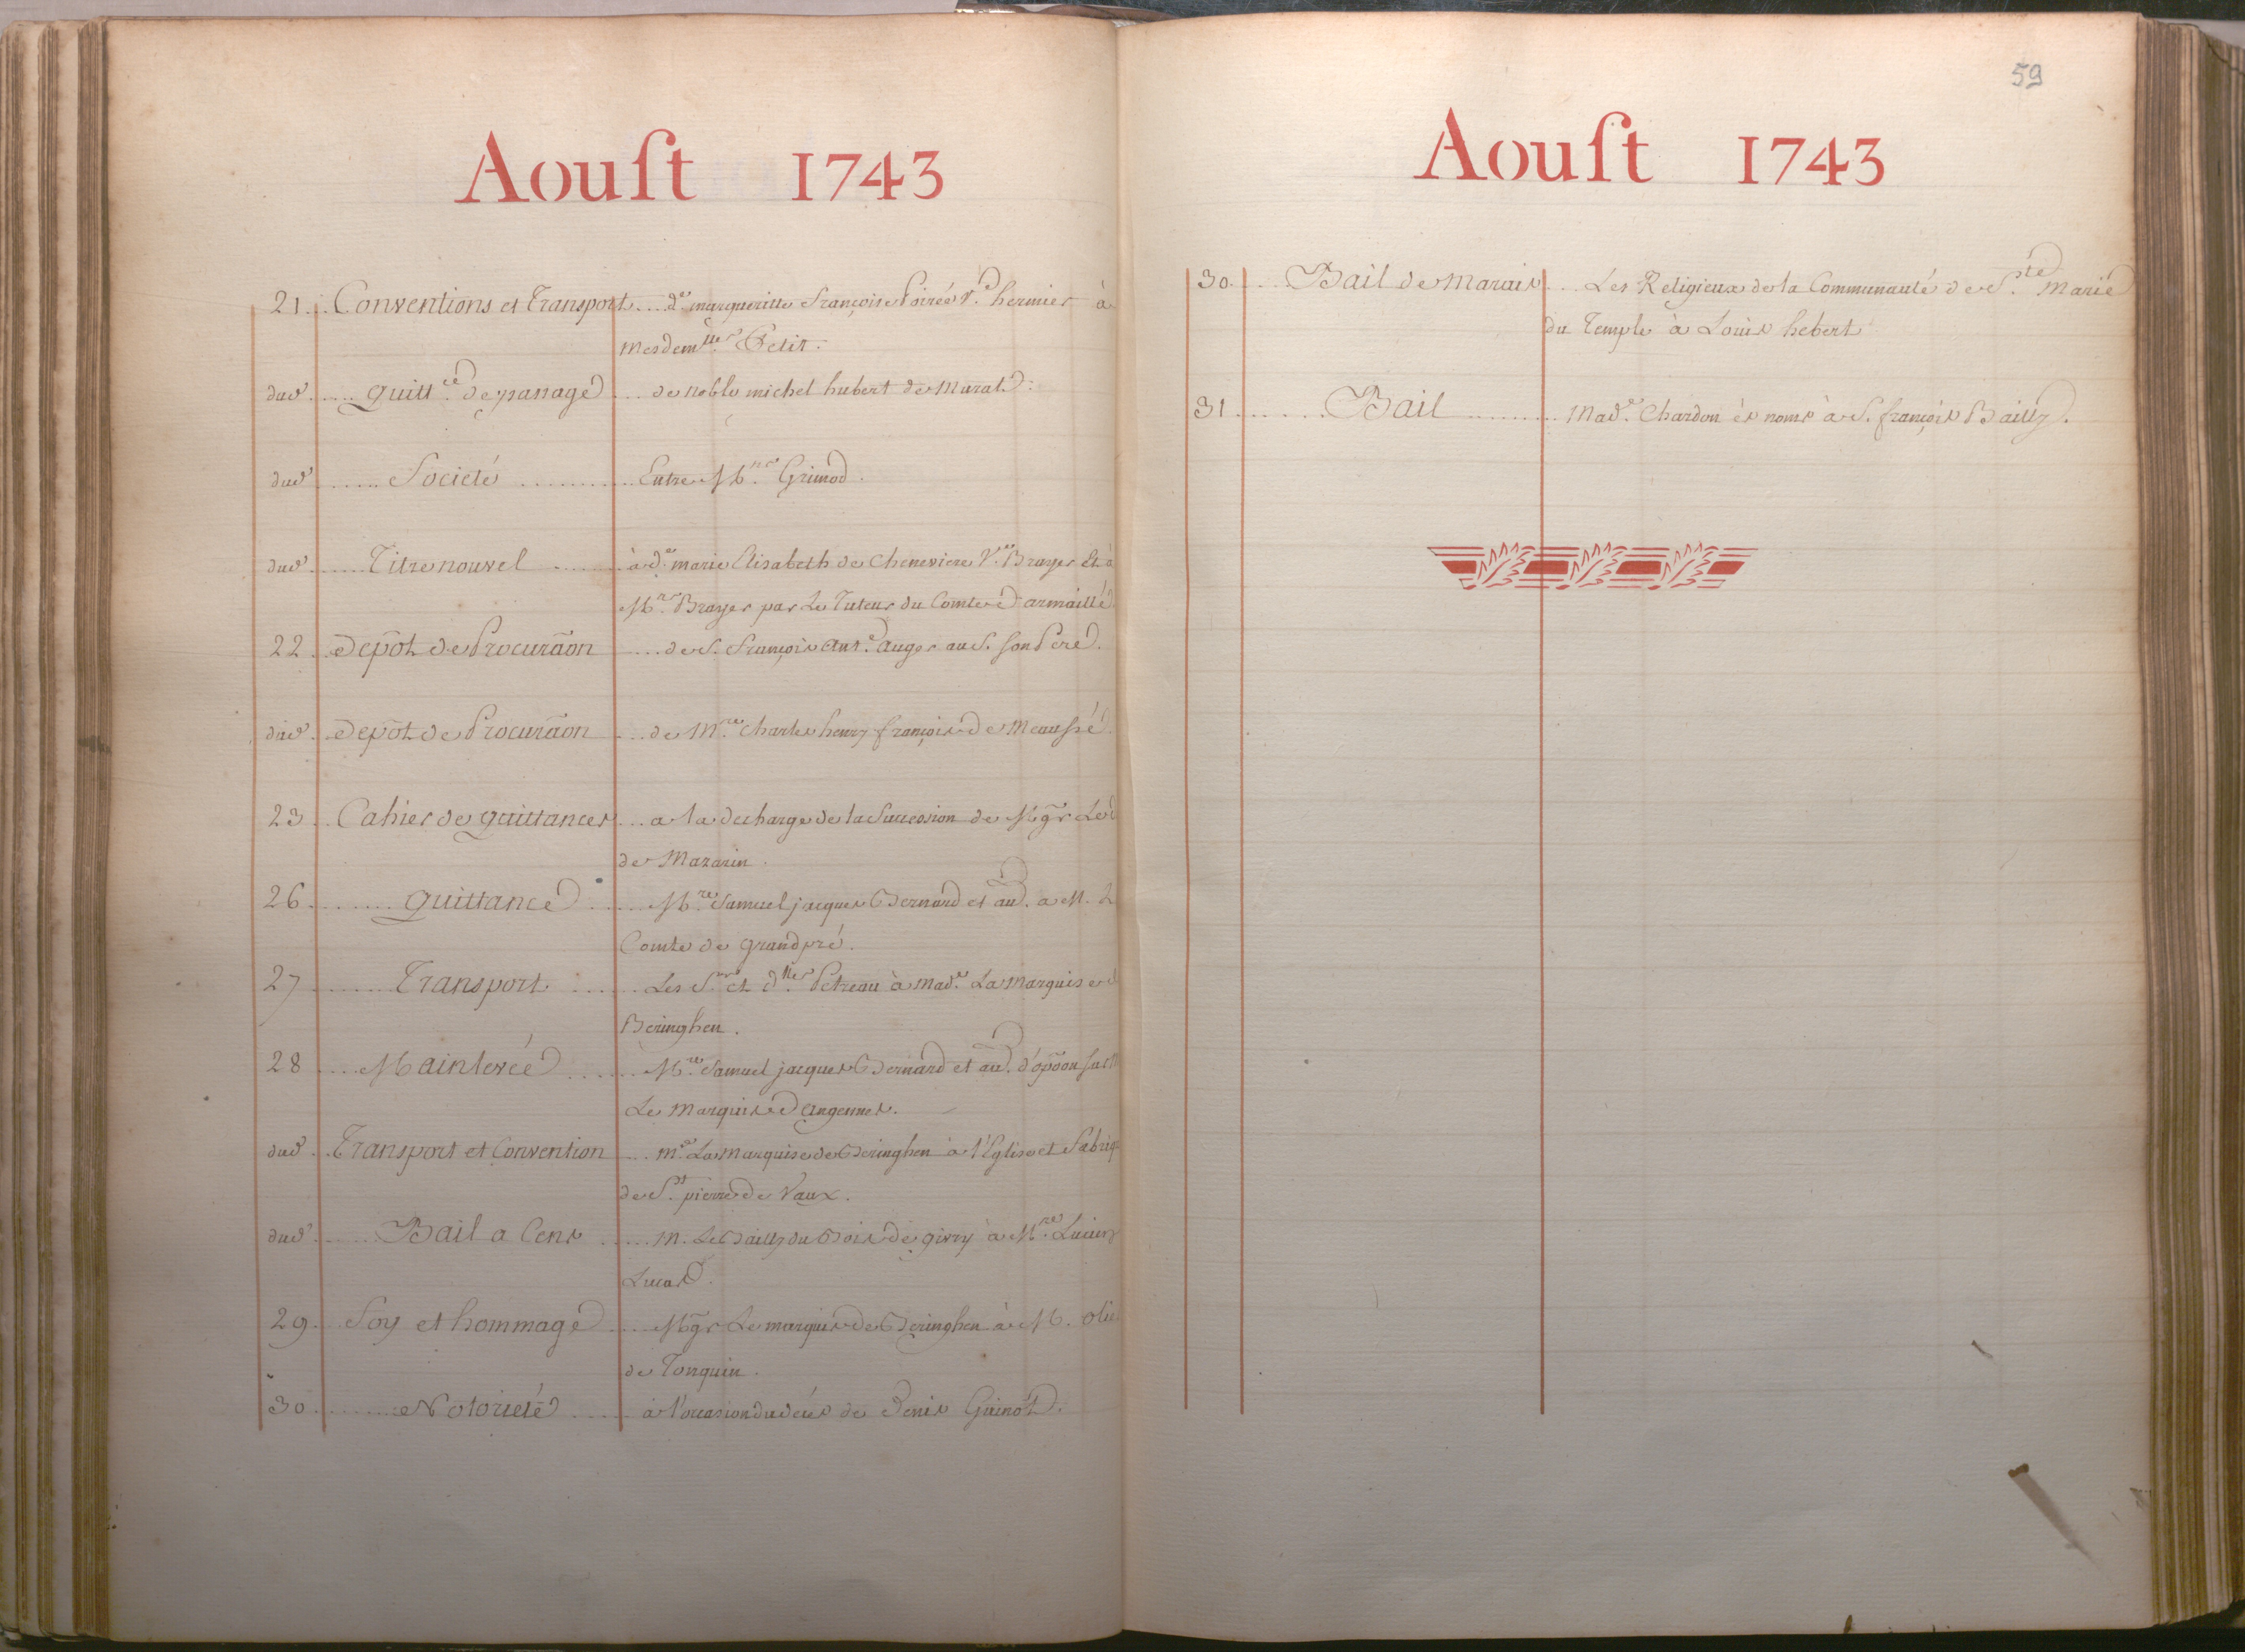 Aouſt 1743
21 Conventions et Transport d.e margueritte françoise Poirée V.e hermier à
Mesdem.lles Petit.
dud. quitt.ce de panage de Noble michel hubert de Murat.
dud. Societé Entre M.rs Grimod.
dud. Titre nouvel à d.e marie Elisabeth de Cheneviere V.e Brayer Et à
M.rs Brayer par Le Tuteur du Comte d'armaillé.
22 Depôt de Procurãon de S. François ant.e auger au S. son Pere.
dud. Depôt de Procurãon de M.re Charles henry françois de
23 Cahier de quittances a la decharge de la Succession de Mgr Le
de Mazarin.
26 quittance M.re Samuel jacques Bernard et au. a M. L
Comte de grandpré.
27 Transport Les S.rs et d.lles Petreau à Mad.e La Marquise
Beringhen.
28 Mainlevée M.re Samuel jacques Bernard et au. d'opõon sur
Le Marquis D'angennes.
dud. Transport et Convention M.e La marquise de Beringhen à l'Eglise et Fabriq
de S.t pierre de Vaux.
dud. Bail a Cens M. Le Bailly du Bois de givry à M.re
Lucas.
29 Foy et hommage Mgr Le marquis de Beringhen à M. Olie
de Tonquin.
30 Notorieté à l'occasion du décés de Denis Guinot.
59
Aouſt 1743
30 Bail de Marais Les Religieux de la Communauté de S.te Marie
du Temple à Louis hebert
31 Bail Mad.e Chardon ès noms à S. françois Bailly.